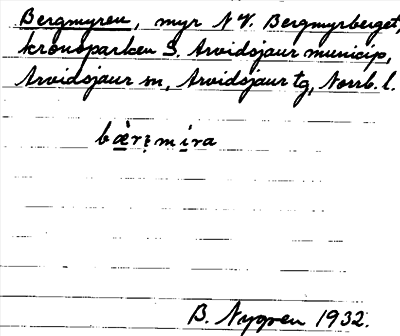 Bergmyren, myr N V. Bergmyrberget,
kronoparken S. Arvidsjaur municip,
Arvidsjaur sn, Arvidsjaur tg, Norrb. l.
bær:mira
B. Nygren 1932.